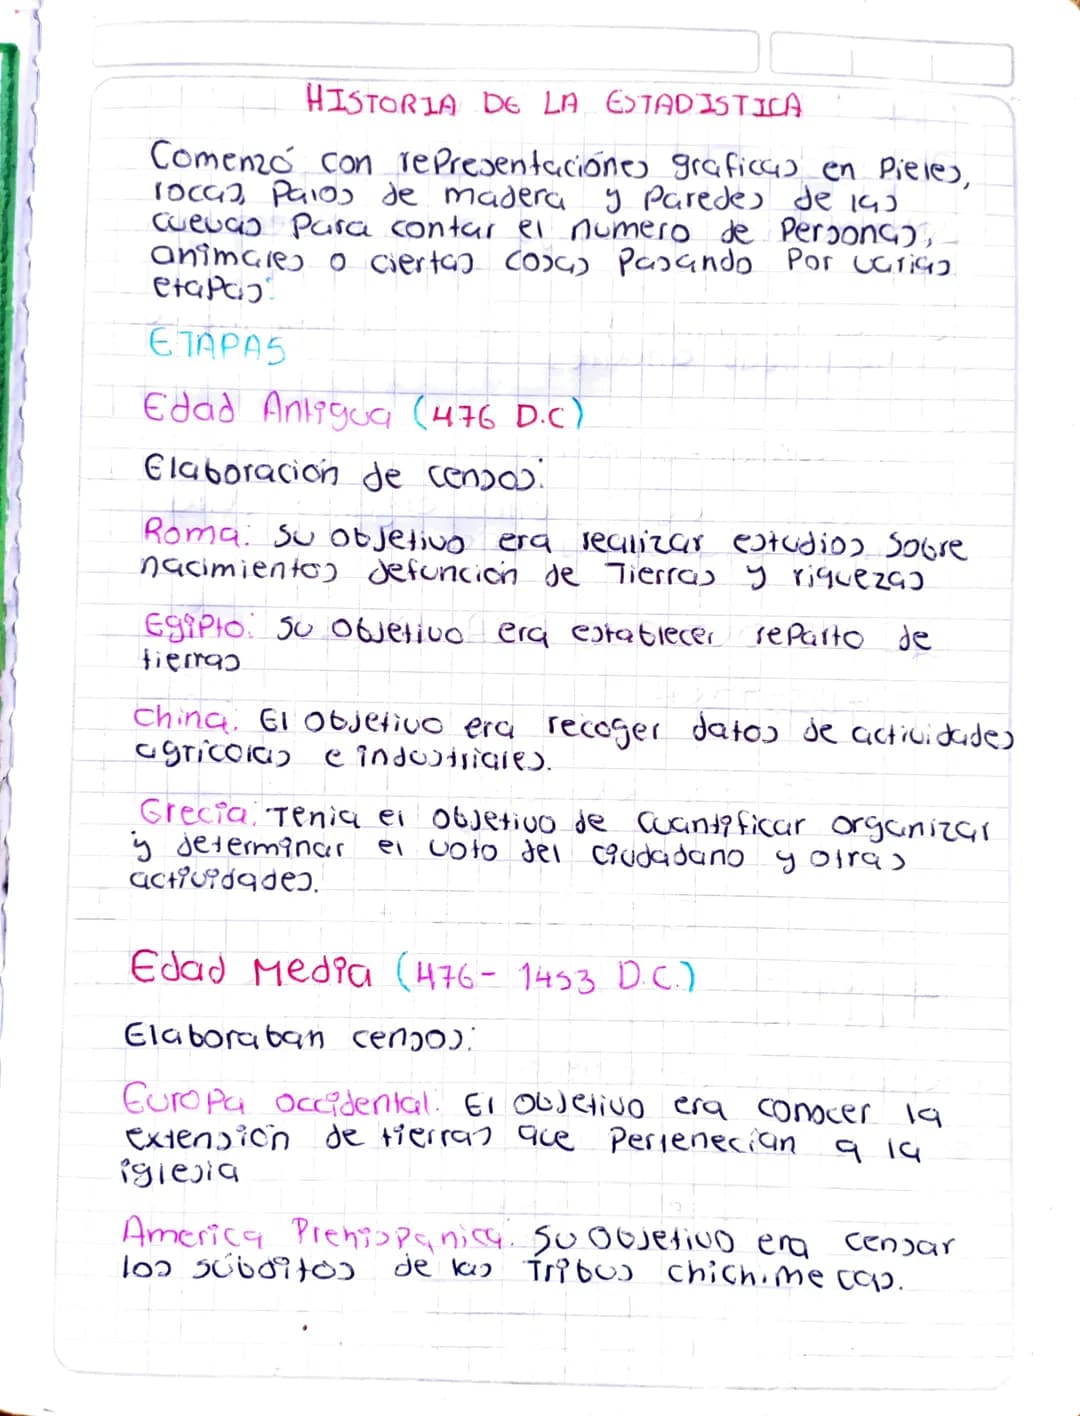 HISTORIA DE LA ESTADISTICA
Comenzó con representaciónes graficas en Pieles,
rocas, Palos de madera y Paredes de las
cuevas Para contar el numero de Personas,
animales o ciertas cosas Pasando Por varias
etapas:
ETAPAS
Edad Antigua (476 D.C)
Elaboración de censos:
Roma: Su objetivo era realizar estudios sobre
nacimientos defunción de Tierras y riquezas
Egipto: Su objetivo era establecer reparto de
tierras
China: El objetivo era recoger datos de actividades
agricolas e industriales.
Grecia: Tenia el objetivo de cuantificar organizar
y determinar el voto del ciudadano y otras
actividades.
Edad Media (476- 1453 D.C.)
Elaboraban censos:
Europa occidental: El objetivo era conocer la
extensión de tierras que Pertenecian a la
iglesia
America Prehispanica: Su objetivo era censar
los súbditos de las Tribus chichimecas.